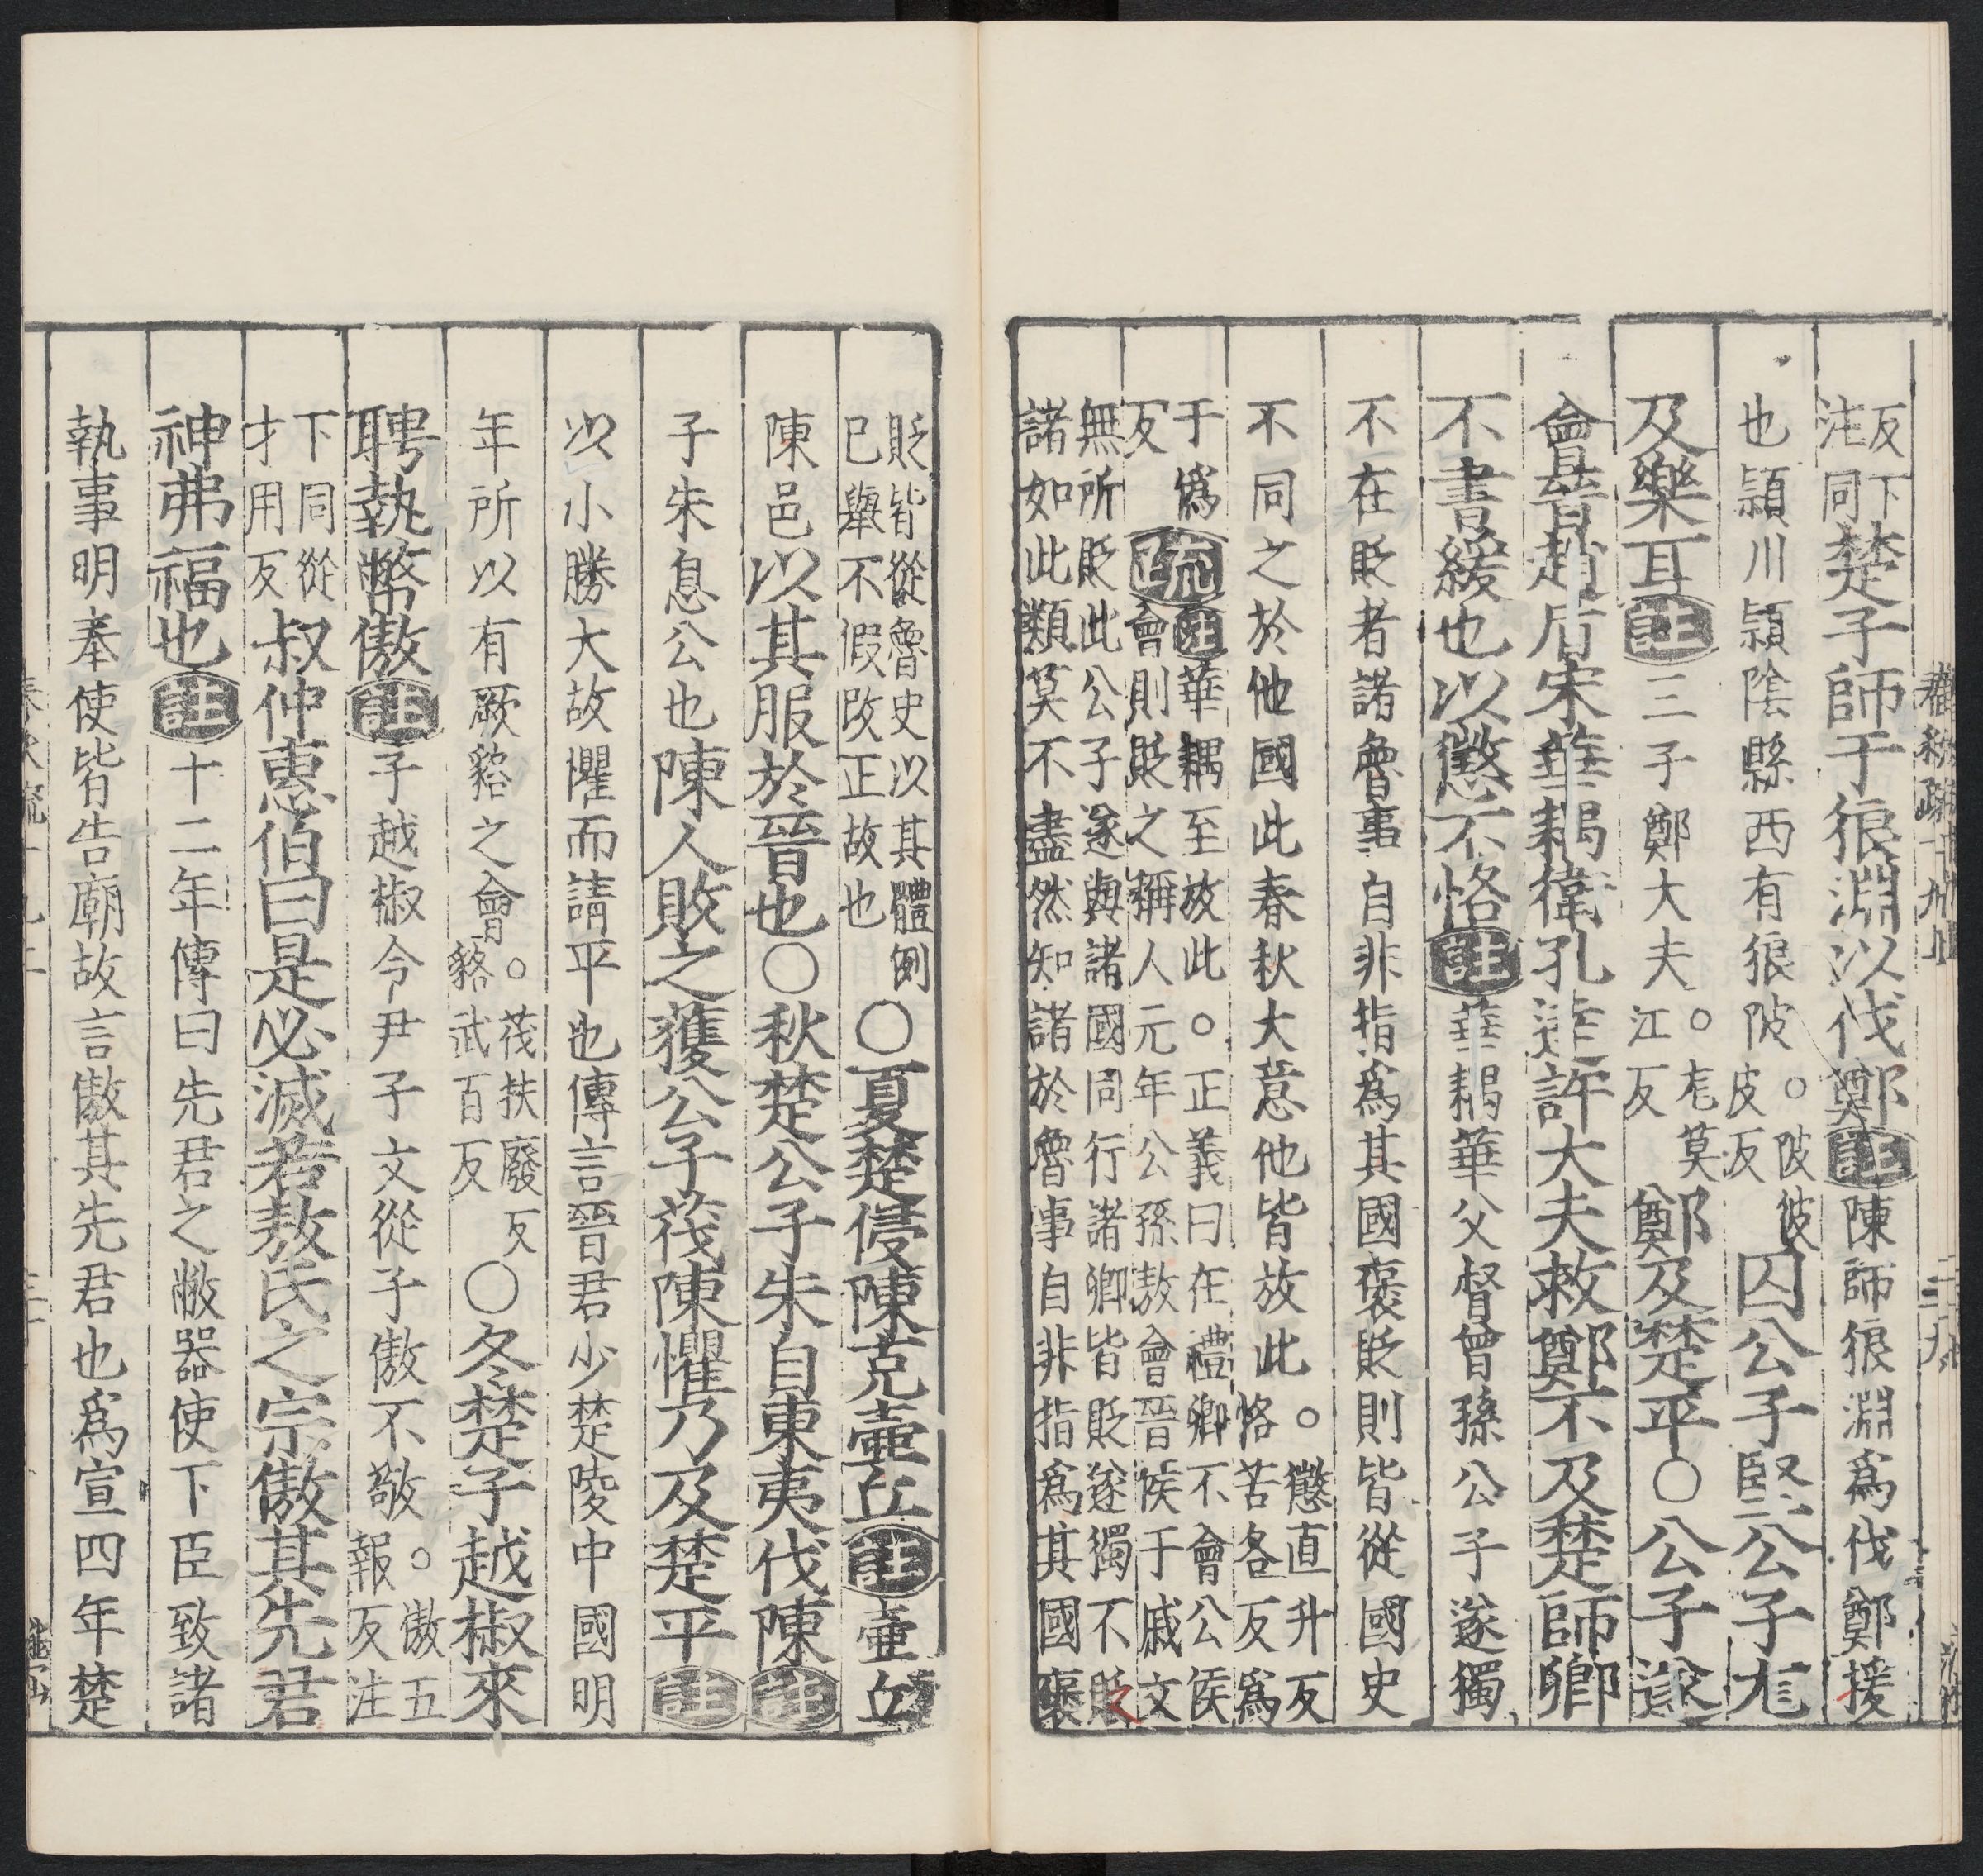 反下
注同楚子師于狼淵以伐鄭註陳師狼淵爲伐鄭援
也潁川潁陰縣西有狼陂。陂彼
皮反囚公子堅公子尨
及樂耳註三子鄭大夫。尨莫
江反鄭及楚平○公子遂
會晉趙盾宋華耦衛孔達許大夫救鄭不及楚師卿
不書緩也以懲不恪註華耦華父督曾孫公子遂獨
不在貶者諸魯事自非指爲其國褒貶則皆從國史
不同之於他國此春秋大意他皆放此。懲直升反
恪苦各反爲
于爲
反疏註華耦至放此。正義曰在禮卿不會公侯
會則貶之稱人元年公孫敖會晉侯于戚文
無所貶此公子遂與諸國同行諸卿皆貶遂獨不貶
諸如此類莫不盡然知諸於魯事自非指爲其國褒
貶皆從魯史以其體例
已舉不假改正故也○夏楚侵陳克壺丘註壺丘
陳邑以其服於晉也○秋楚公子朱自東夷伐陳註
子朱息公也陳人敗之獲公子茷陳懼乃及楚平註
以小勝大故懼而請平也傳言晉君少楚陵中國明
年所以有厥貉之會。茷扶廢反
貉武百反○冬楚子越椒來
聘執幣傲註子越椒令尹子文從子傲不敬。傲五
報反注
下同從
才用反叔仲惠伯曰是必滅若敖氏之宗傲其先君
神弗福也註十二年傳曰先君之敝器使下臣致諸
執事明奉使皆告廟故言傲其先君也爲宣四年楚